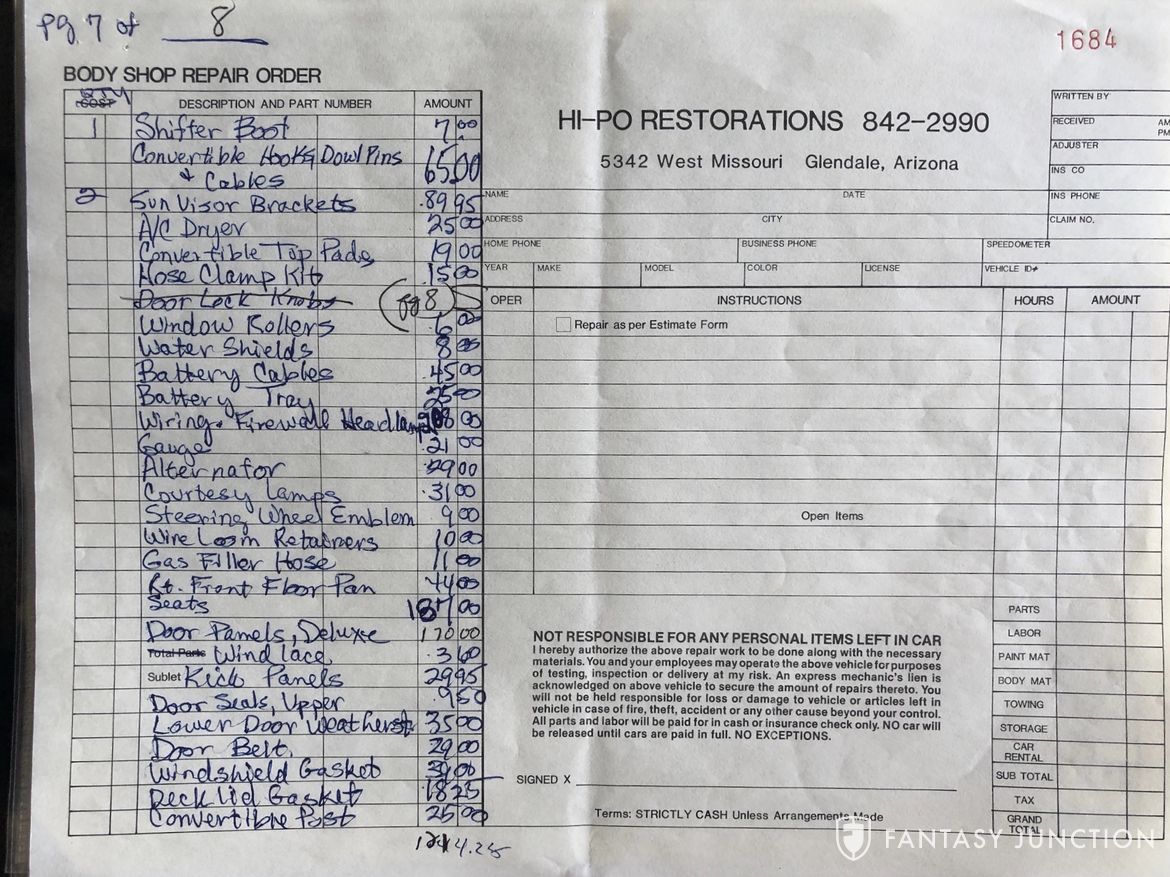 pg 7 of 8
1684
BODY SHOP REPAIR ORDER
QTY COST DESCRIPTION AND PART NUMBER AMOUNT
HI-PO RESTORATIONS 842-2990
5342 West Missouri Glendale, Arizona
WRITTEN BY
RECEIVED AM PM
ADJUSTER
INS CO
NAME DATE INS PHONE
ADDRESS CITY CLAIM NO.
HOME PHONE BUSINESS PHONE SPEEDOMETER
YEAR MAKE MODEL COLOR LICENSE VEHICLE ID#
1 Shifter Boot 7.00
Convertible Hooks, Dowl Pins 65.00
& Cables
2 Sun Visor Brackets 89.95
A/C Dryer 25.00
Convertible Top Pads 19.00
Hose Clamp Kit 15.00
Door Lock Knobs pg 8
Window Rollers 6.00
Water Shields 8.00
Battery Cables 45.00
Battery Tray 25.00
Wiring. Firewall Headlamp 00
Gauge 21.00
Alternator 29.00
Courtesy Lamps 31.00
Steering Wheel Emblem 9.00
Wire Loom Retainers 10.00
Gas Filler Hose 11.00
Rt. Front Floor Pan 44.00
Seats 187.00
Door Panels, Deluxe 170.00
Total Parts Windlace 3.60
Sublet Kick Panels 29.95
Door Seals, Upper 9.50
Lower Door Weatherst 35.00
Door Belt 29.00
Windshield Gasket 39.00
Deck lid Gasket 18.25
Convertible Post 25.00
OPER INSTRUCTIONS HOURS AMOUNT
Repair as per Estimate Form
Open Items
NOT RESPONSIBLE FOR ANY PERSONAL ITEMS LEFT IN CAR
I hereby authorize the above repair work to be done along with the necessary
materials. You and your employees may operate the above vehicle for purposes
of testing, inspection or delivery at my risk. An express mechanic's lien is
acknowledged on above vehicle to secure the amount of repairs thereto. You
will not be held responsible for loss or damage to vehicle or articles left in
vehicle in case of fire, theft, accident or any other cause beyond your control.
All parts and labor will be paid for in cash or insurance check only. NO car will
be released until cars are paid in full. NO EXCEPTIONS.
SIGNED X
Terms: STRICTLY CASH Unless Arrangements Made
PARTS
LABOR
PAINT MAT
BODY MAT
TOWING
STORAGE
CAR RENTAL
SUB TOTAL
TAX
GRAND TOTAL
FANTASY JUNCTION